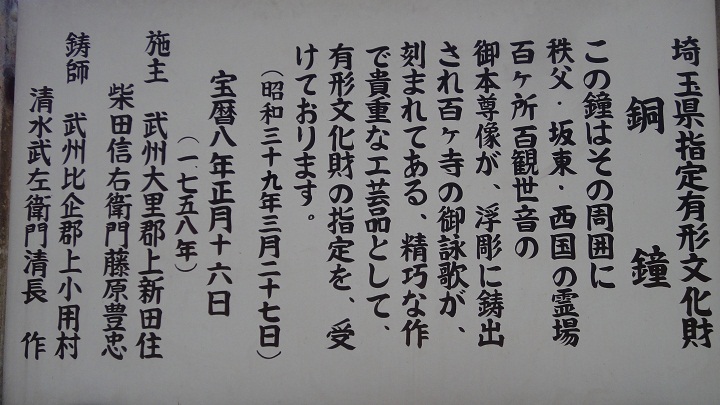 埼玉県指定有形文化財
銅鐘
この鐘はその周囲に
秩父・坂東・西国の霊場
百ヶ所百観世音の
御本尊像が、浮彫に鋳出
され百ヶ寺の御詠歌が、
刻まれてある、精巧な作
で貴重な工芸品として、
有形文化財の指定を、受
けております。
（昭和三十九年三月二十七日）
宝暦八年正月十六日
（一七五八年）
施主 武州大里郡上新田住
柴田信右衛門藤原豊忠
鋳師 武州比企郡上小用村
清水武左衛門清長 作